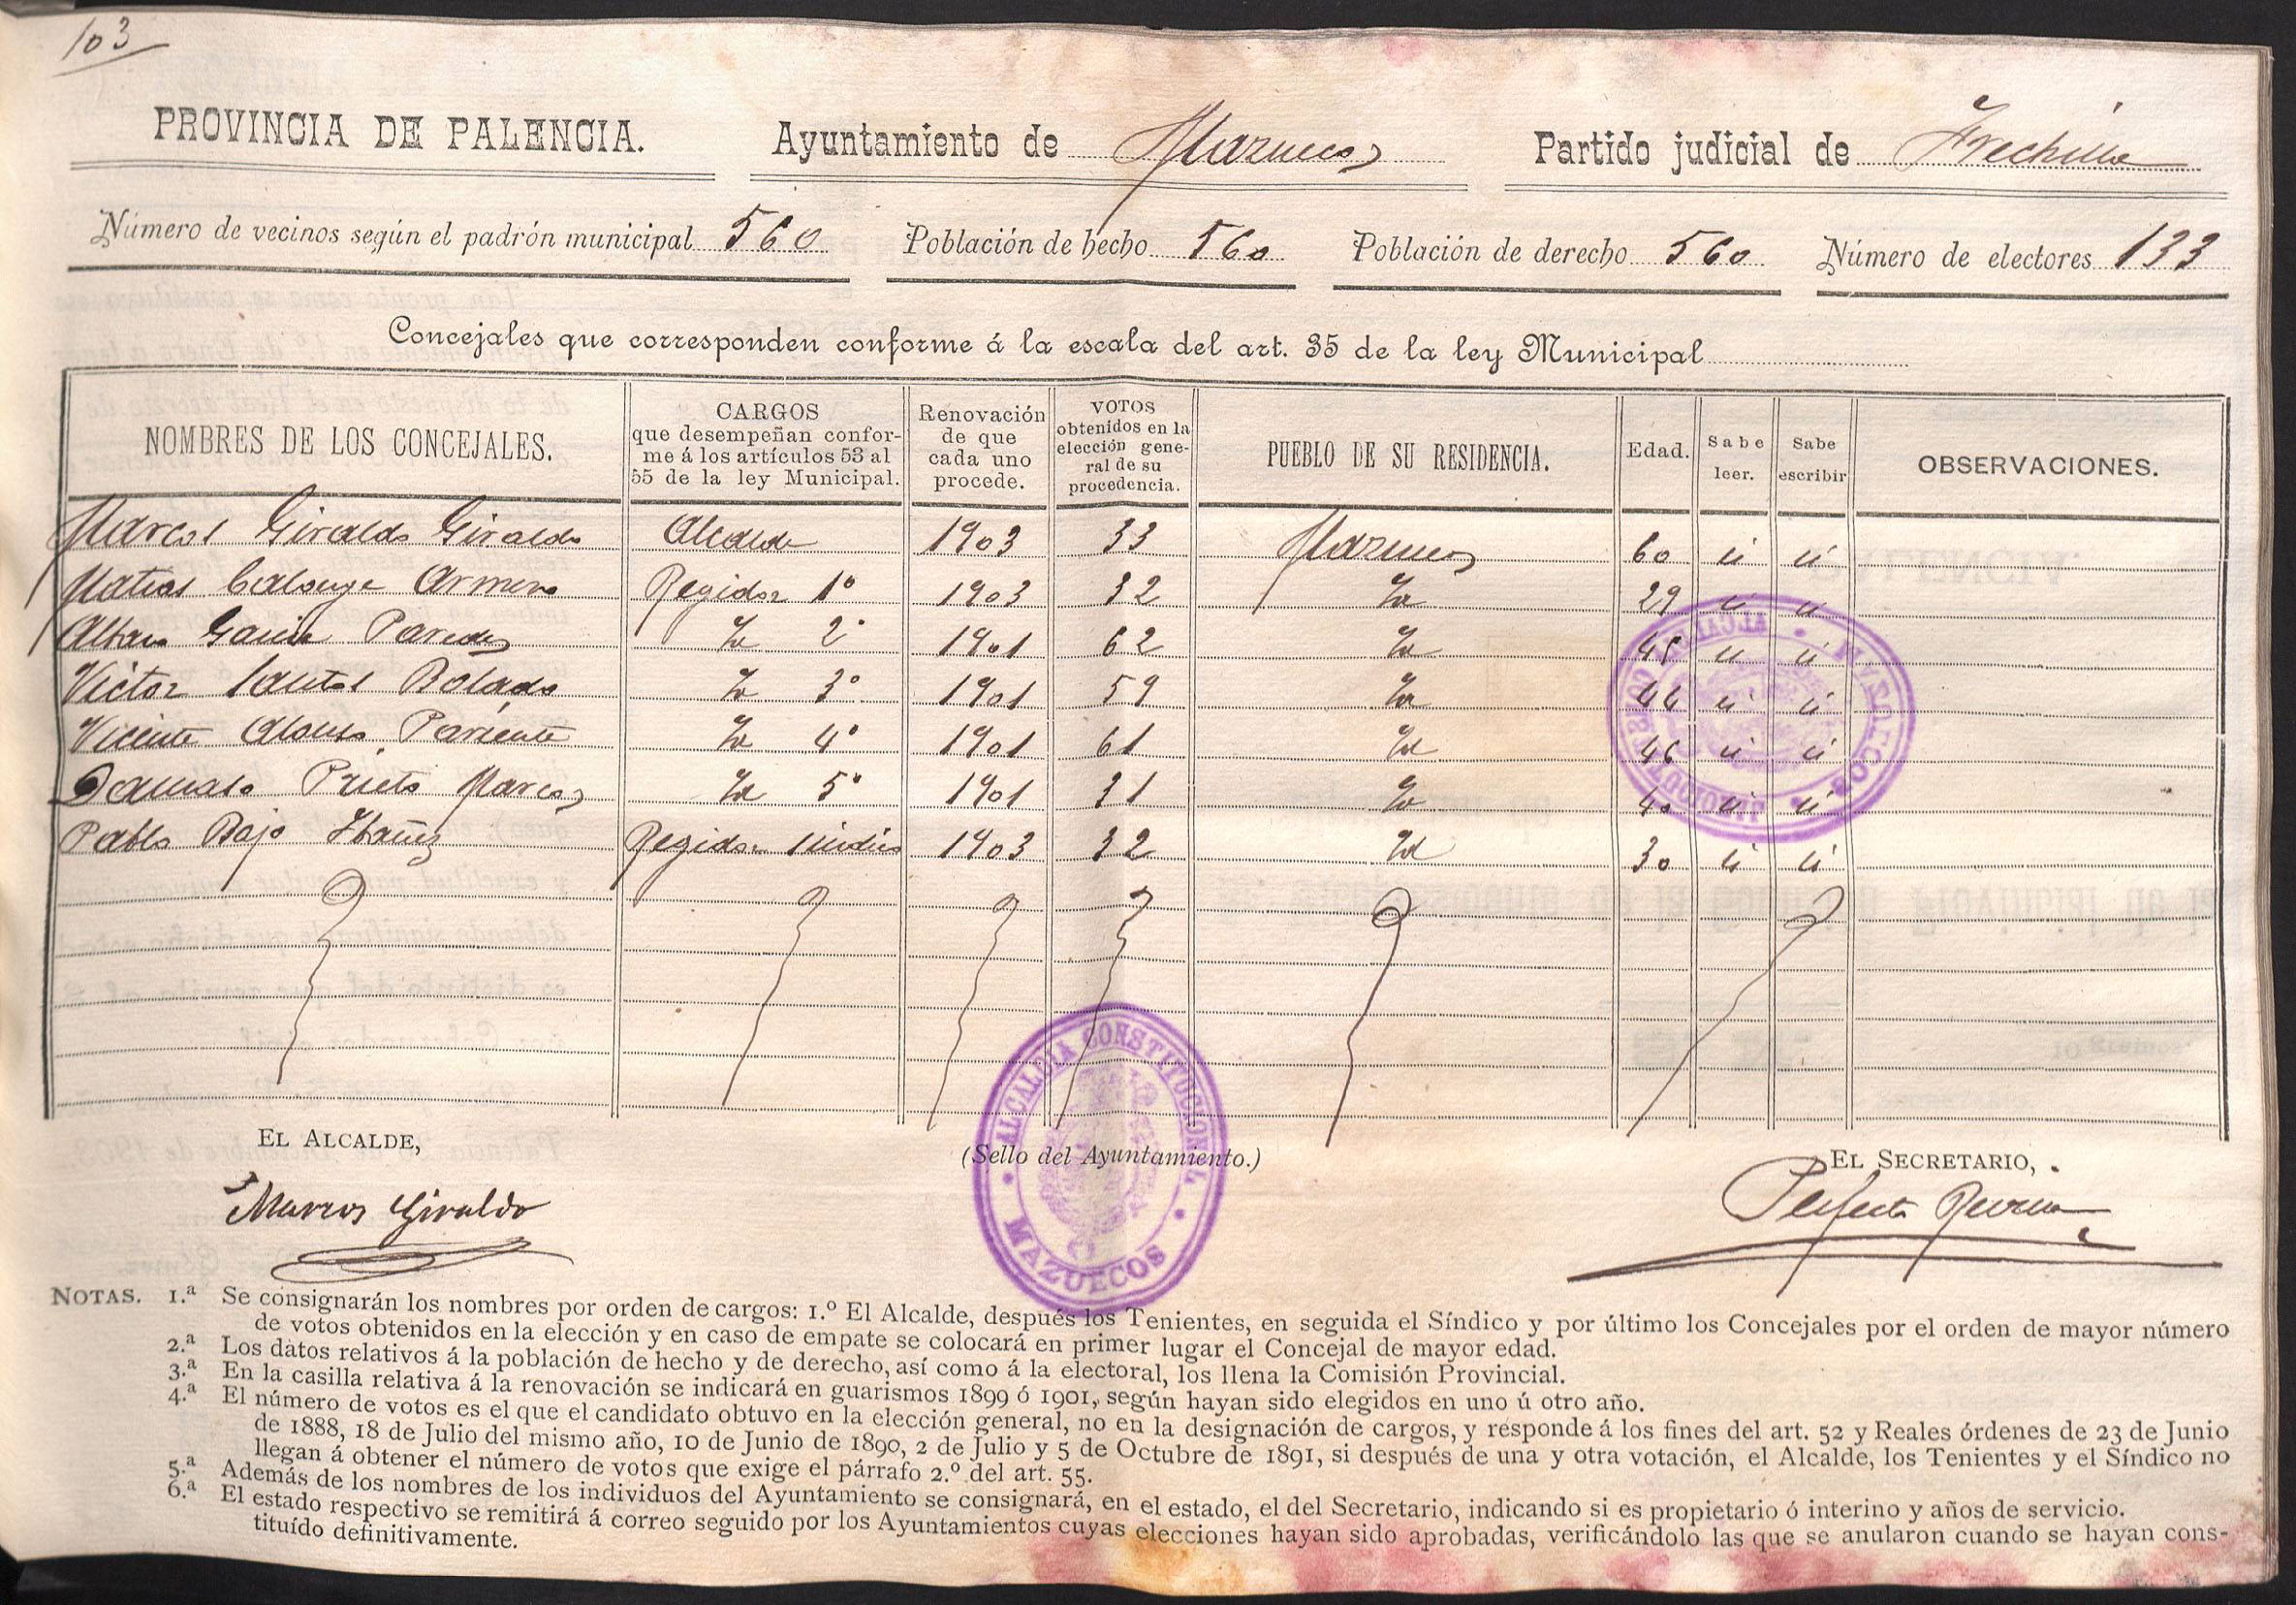 103
PROVINCIA DE PALENCIA. Ayuntamiento de Mazuecos Partido judicial de Frechilla
Número de vecinos según el padrón municipal 560 Población de hecho 560 Población de derecho 560 Número de electores 133
Concejales que corresponden conforme á la escala del art. 35 de la ley Municipal
NOMBRES DE LOS CONCEJALES. CARGOS que desempeñan conforme á los artículos 53 al 55 de la ley Municipal. Renovación de que cada uno procede. VOTOS obtenidos en la elección general de su procedencia. PUEBLO DE SU RESIDENCIA. Edad. Sabe leer. Sabe escribir OBSERVACIONES.
Marcos Giraldo Giraldo Alcalde 1903 33 Mazuecos 60 si si
Matias Calonge Armero Regidor 1º 1903 32 Id 29 si si
Albano Garcia Paredes Id 2º 1901 62 Id 45 si si
Victor Santos Bolado Id 3º 1901 59 Id 44 si si
Vicente Alonso Pariente Id 4º 1901 61 Id 46 si si
Damaso Prieto Marcos Id 5º 1901 31 Id 40 si si
Pablo Bajo Ibañez Regidor Sindico 1903 32 Id 30 si si
ALCALDIA CONSTITUCIONAL
MAZUECOS
EL ALCALDE, (Sello del Ayuntamiento.) EL SECRETARIO,
Marcos Giraldo Perfecto
ALCALDIA CONSTITUCIONAL
MAZUECOS
NOTAS. 1.ª Se consignarán los nombres por orden de cargos: 1.º El Alcalde, después los Tenientes, en seguida el Síndico y por último los Concejales por el orden de mayor número
de votos obtenidos en la elección y en caso de empate se colocará en primer lugar el Concejal de mayor edad.
2.ª Los datos relativos á la población de hecho y de derecho, así como á la electoral, los llena la Comisión Provincial.
3.ª En la casilla relativa á la renovación se indicará en guarismos 1899 ó 1901, según hayan sido elegidos en uno ú otro año.
4.ª El número de votos es el que el candidato obtuvo en la elección general, no en la designación de cargos, y responde á los fines del art. 52 y Reales órdenes de 23 de Junio
de 1888, 18 de Julio del mismo año, 10 de Junio de 1890, 2 de Julio y 5 de Octubre de 1891, si después de una y otra votación, el Alcalde, los Tenientes y el Síndico no
llegan á obtener el número de votos que exige el párrafo 2.º del art. 55.
5.ª Además de los nombres de los individuos del Ayuntamiento se consignará, en el estado, el del Secretario, indicando si es propietario ó interino y años de servicio.
6.ª El estado respectivo se remitirá á correo seguido por los Ayuntamientos cuyas elecciones hayan sido aprobadas, verificándolo las que se anularon cuando se hayan cons-
tituído definitivamente.